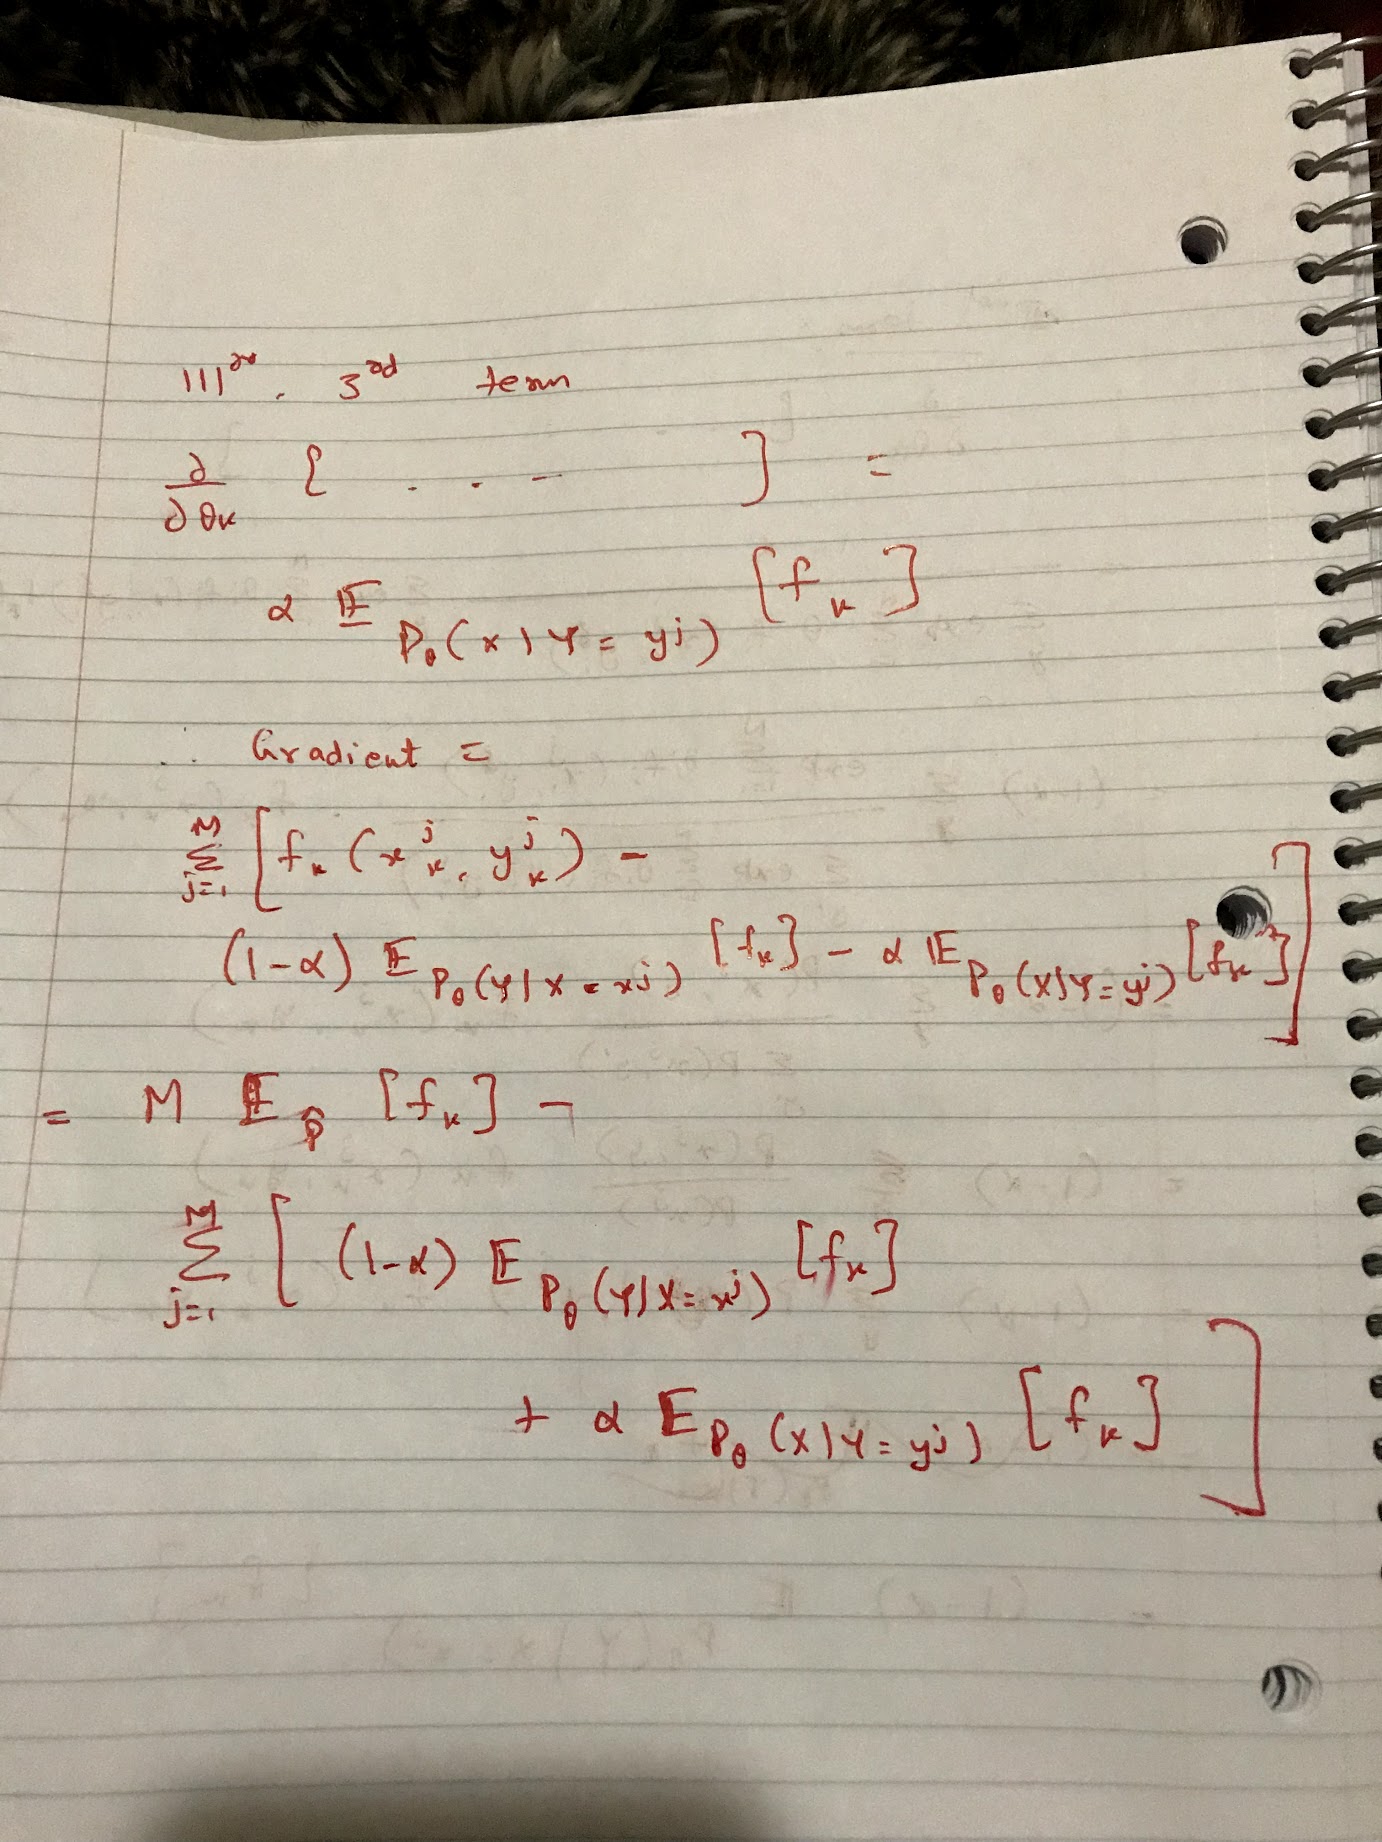 |||ʳˡʸ. 3ʳᵈ term
∂/∂θₖ [ . . . - ] =
α 𝔼_{P_θ(X|Y=y^j)} [f_k]
∴ Gradient =
∑_{j=1}^{M} [ f_k (x_k^j, y_k^j) -
(1-α) 𝔼_{P_θ(Y|X=x^j)} [f_k] - α 𝔼_{P_θ(X|Y=y^j)} [f_k] ]
= M 𝔼_{p̂} [f_k] -
∑_{j=1}^{M} [ (1-α) 𝔼_{P_θ(Y|X=x^j)} [f_k]
+ α 𝔼_{P_θ(X|Y=y^j)} [f_k] ]